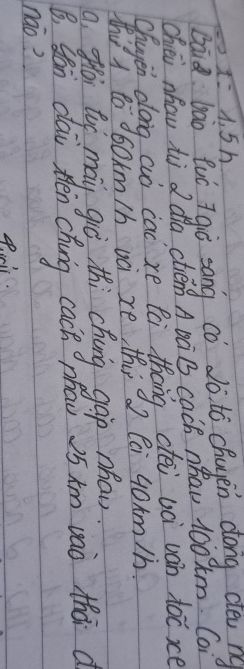 => t = 1,5h
Bài 2: vào lúc 7 giờ sáng có 2 ô tô chuyển động đều
chiều nhau từ 2 địa điểm A và B cách nhau 100km. Coi
chuyển động của các xe là thẳng đều với vận tốc xe
thứ 1 là 60km/h và xe thứ 2 là 40km/h.
a. Hỏi lúc mấy giờ thì chúng gặp nhau
B. Lần đầu tiên chúng cách nhau 25 km vào thời
nào?